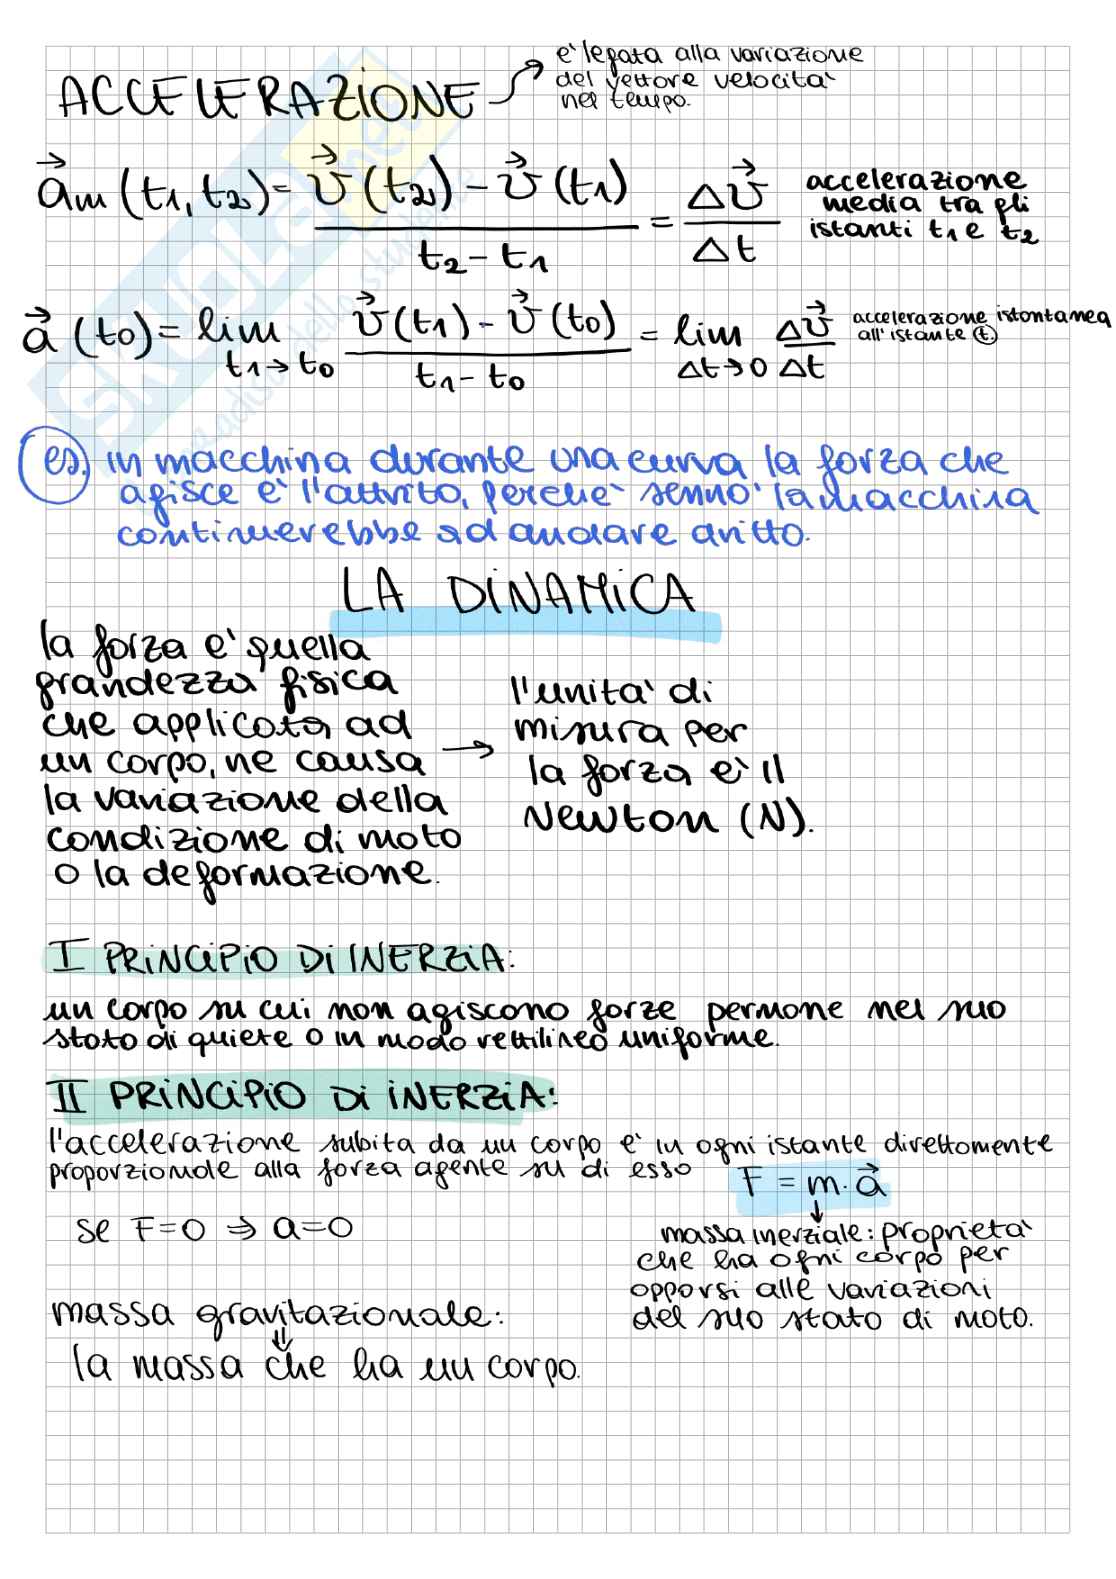 ACCELERAZIONE
è legata alla variazione
del vettore velocità
nel tempo.
a⃗m (t1, t2) = v⃗(t2) - v⃗(t1) / t2 - t1 = Δv⃗ / Δt
accelerazione
media tra gli
istanti t1 e t2
a⃗ (t0) = lim t1→t0 v⃗(t1) - v⃗(t0) / t1 - t0 = lim Δt→0 Δv⃗ / Δt
accelerazione istantanea
all'istante t.
es. in macchina durante una curva la forza che
agisce è l'attrito, perché sennò la macchina
continuerebbe ad andare dritto.
LA DINAMICA
la forza è quella
grandezza fisica
che applicata ad
un corpo, ne causa
la variazione della
condizione di moto
o la deformazione.
→ l'unità di
misura per
la forza è il
Newton (N).
I PRINCIPIO DI INERZIA:
un corpo su cui non agiscono forze permane nel suo
stato di quiete o in modo rettilineo uniforme.
II PRINCIPIO DI INERZIA:
l'accelerazione subita da un corpo è in ogni istante direttamente
proporzionale alla forza agente su di esso
F = m · a⃗
se F=0 ⇒ a=0
massa inerziale: proprietà
che ha ogni corpo per
opporsi alle variazioni
del suo stato di moto.
massa gravitazionale:
⇓
la massa che ha un corpo.
SKUOLA.net